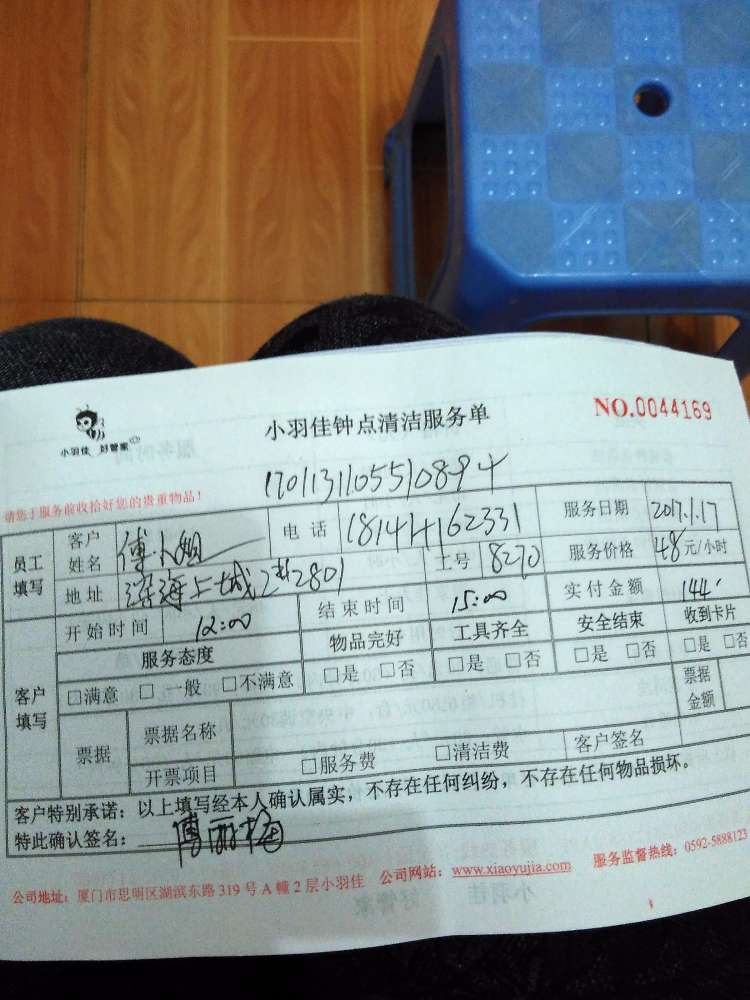 小羽佳 好管家
小羽佳钟点清洁服务单
NO.0044169
请您于服务前收拾好您的贵重物品！
170113110551 0894
员工填写 客户姓名 傅小姐 电话 18144162331 服务日期 2017.1.17
地址 上城2#2801 工号 8270 服务价格 48元/小时
客户填写 开始时间 12:00 结束时间 15:00 实付金额 144
服务态度 物品完好 工具齐全 安全结束 收到卡片
□满意 □一般 □不满意 □是 □否 □是 □否 □是 □否 □是 □否
票据 票据名称 票据金额
开票项目 □服务费 □清洁费 客户签名
客户特别承诺：以上填写经本人确认属实，不存在任何纠纷，不存在任何物品损坏。
特此确认签名： 傅丽梅
公司地址：厦门市思明区湖滨东路 319 号 A 幢 2 层小羽佳 公司网站：www.xiaoyujia.com 服务监督热线：0592-5888123